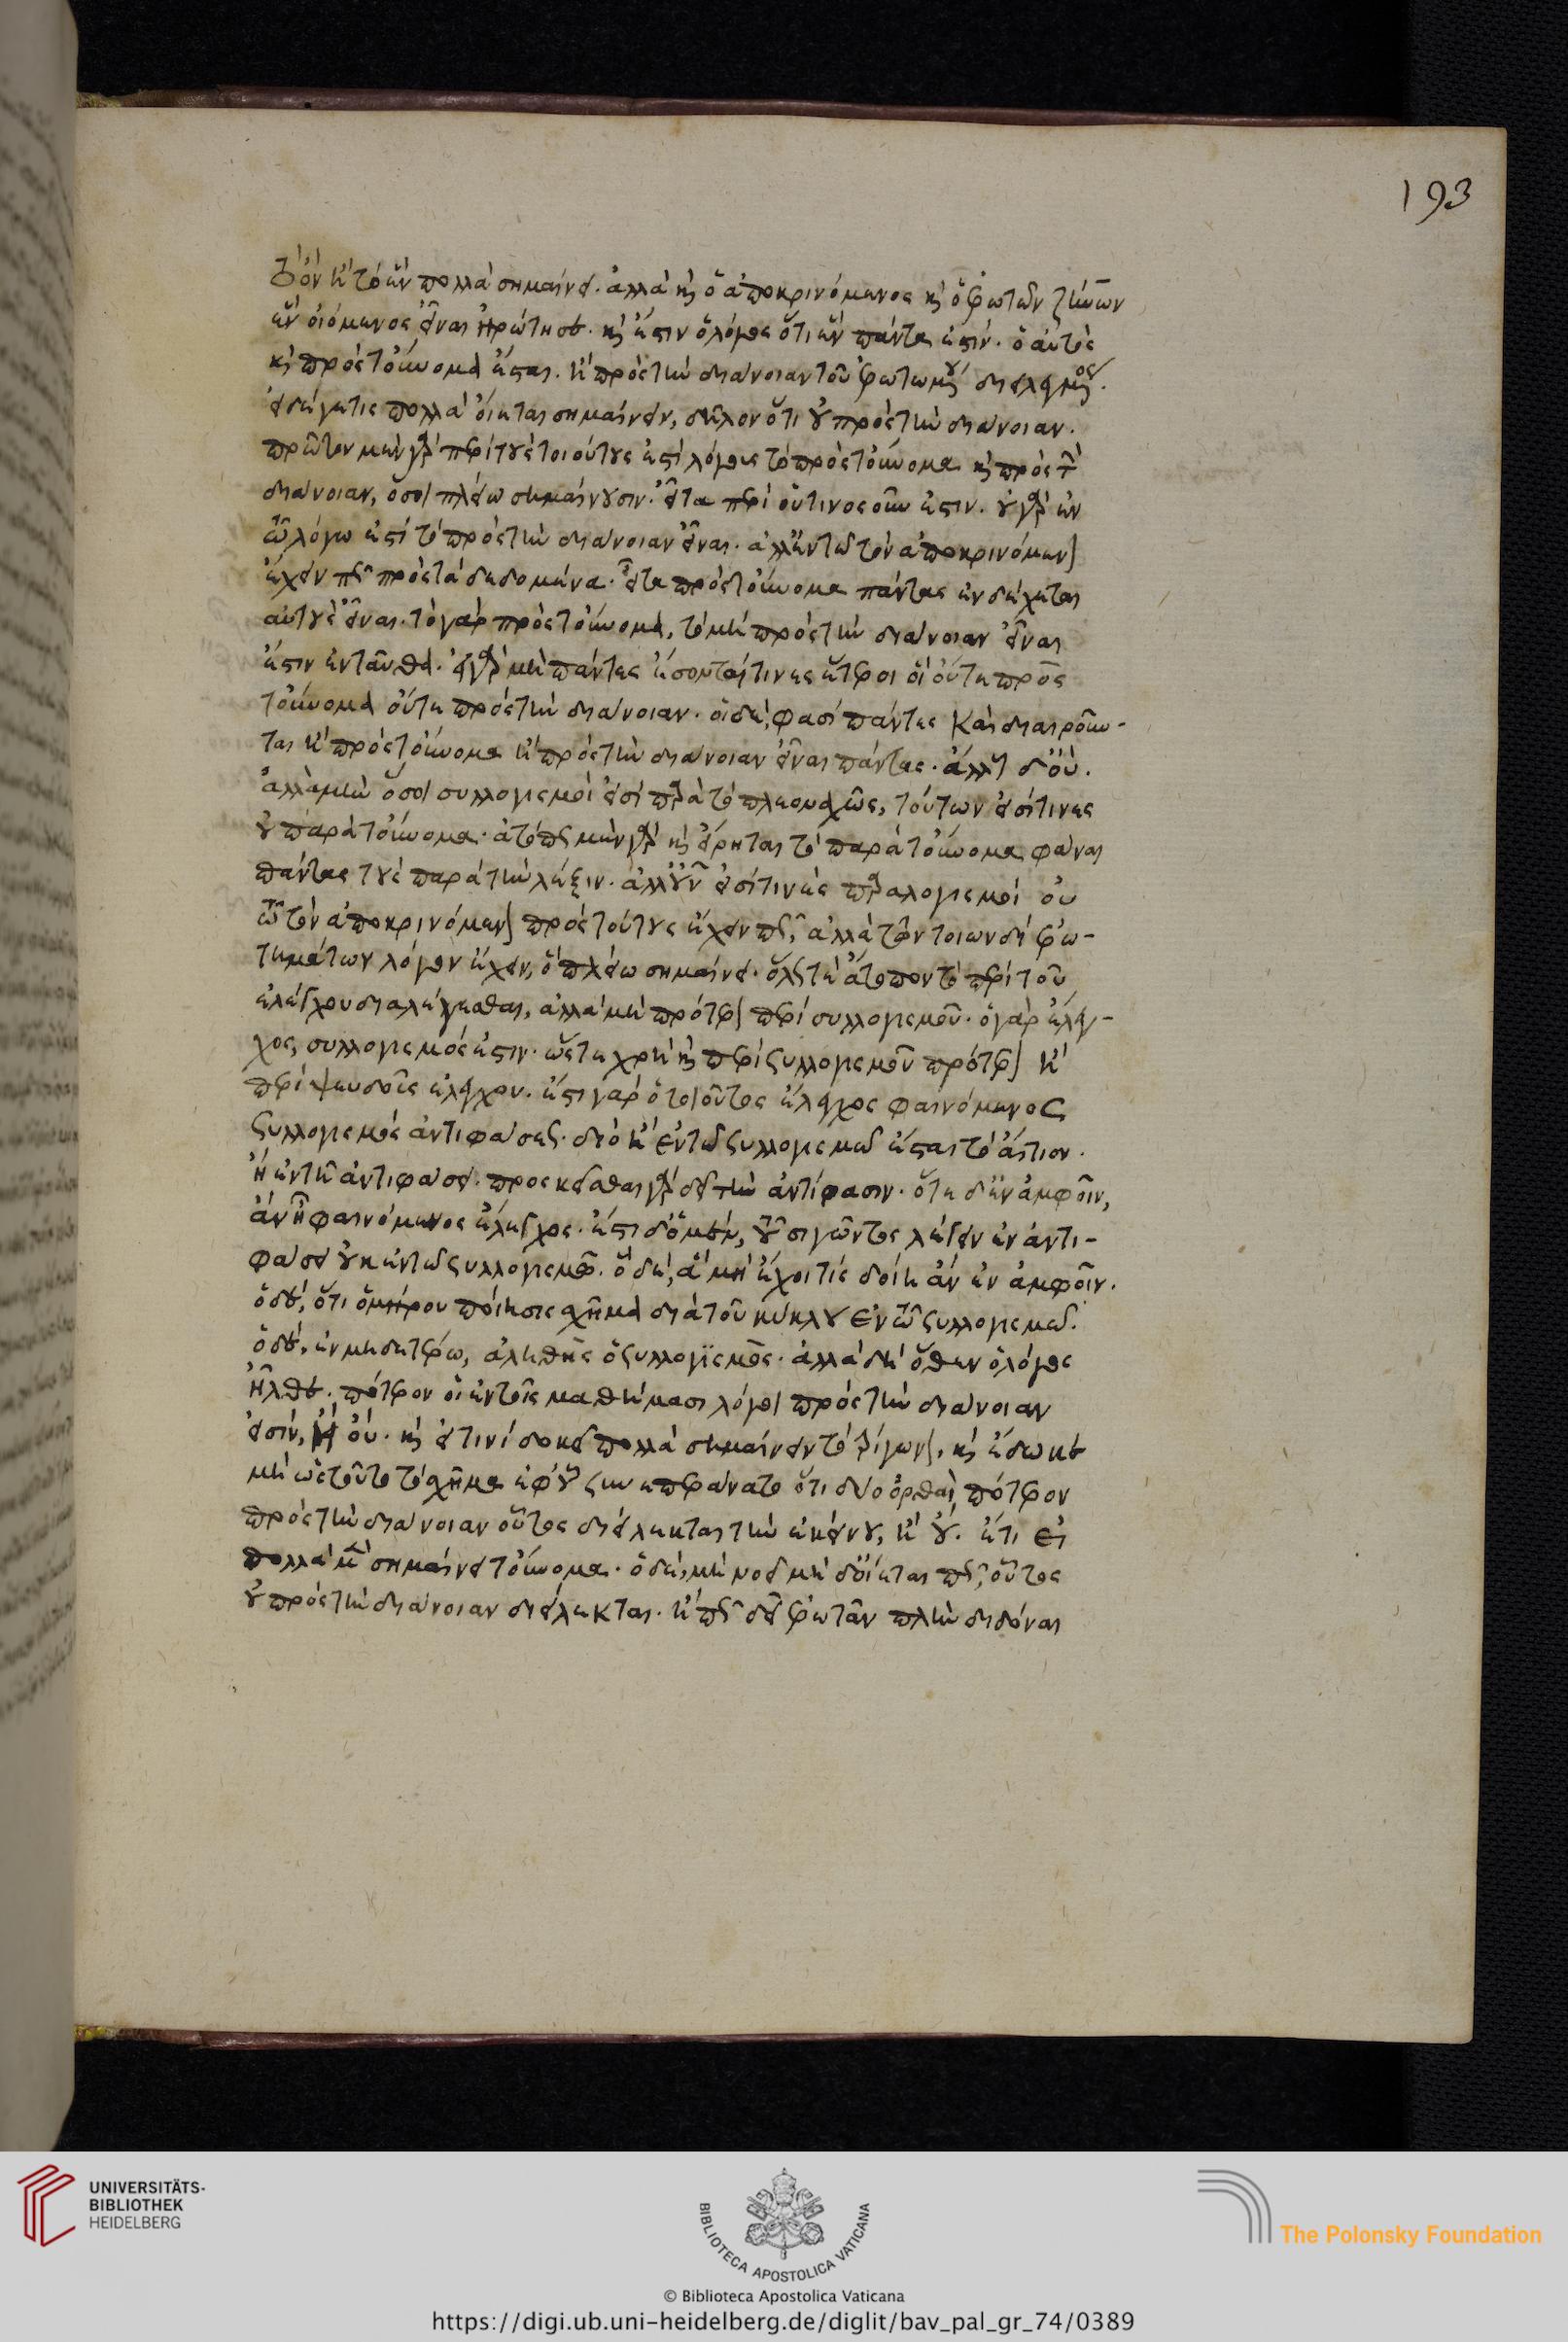 193
τὸ ὂν ἢ τὸ ἓν πολλὰ σημαίνει. ἀλλὰ καὶ ὁ ἀποκρινόμενος καὶ ὁ ἐρωτῶν ζήνων
ἓν οἰόμενος εἶναι ἠρώτησε. καὶ ἔστιν ὁ λόγος ὅτι ἓν πάντα ἐστίν. ὁ αὐτὸς
καὶ πρὸς τοὔνομα ἔσται. ἢ πρὸς τὴν διάνοιαν τοῦ ἐρωτωμένου διειλεγμένος.
εἰ δέ γε τις πολλὰ οἴεται σημαίνειν, δῆλον ὅτι οὐ πρὸς τὴν διάνοιαν.
πρῶτον μὲν γὰρ περὶ τοὺς τοιούτους ἐστὶ λόγους τὸ πρὸς τοὔνομα καὶ πρὸς τὴν
διάνοιαν, ὅσοι πλείω σημαίνουσιν. εἶτα περὶ ὁντινοσοῦν ἐστιν. οὐ γὰρ ἐν
τῷ λόγω ἐστὶ τὸ πρὸς τὴν διάνοιαν εἶναι. ἀλλ' ἐν τῷ τὸν ἀποκρινόμενον
ἔχειν πῶς πρὸς τὰ δεδομένα. εἶτα πρὸς τοὔνομα πάντας ἐνδέχεται
αὐτοὺς εἶναι. τὸ γὰρ πρὸς τοὔνομα, τὸ μὴ πρὸς τὴν διάνοιαν εἶναι
ἔστιν ἐνταῦθα. εἰ γὰρ μὴ πάντες ἔσονταί τινες ἕτεροι οἳ οὔτε πρὸς
τοὔνομα οὔτε πρὸς τὴν διάνοιαν. οἱ δέ, φασὶ πάντες καὶ διαιροῦν-
ται ἢ πρὸς τοὔνομα ἢ πρὸς τὴν διάνοιαν εἶναι πάντας. ἄλλους δ' οὔ.
ἀλλὰ μὴν ὅσοι συλλογισμοὶ εἰσὶ παρὰ τὸ πλεοναχῶς, τούτων εἰσί τινες
οὐ παρὰ τοὔνομα. ἀτόπως μὲν γὰρ καὶ εἴρηται τὸ παρὰ τοὔνομα φάναι
πάντας τοὺς παρὰ τὴν λέξιν. ἀλλ' οὖν εἰσί τινὲς παραλογισμοὶ οὐ
τῷ τὸν ἀποκρινόμενον πρὸς τούτους ἔχειν πῶς, ἀλλὰ τῷ τοιονδὶ ἐρώ-
τημάτων λόγον ἔχειν, ὃ πλείω σημαίνει. ὅλως τε ἄτοπον τὸ περὶ τοῦ
ἐλέγχου διαλέγεσθαι, ἀλλὰ μὴ πρότερον περὶ συλλογισμοῦ. ὁ γὰρ ἔλεγ-
χος, συλλογισμός ἐστιν. ὥστε χρὴ καὶ περὶ συλλογισμοῦ πρότερον ἢ
περὶ ψευδοῦς ἐλέγχου. ἔστι γὰρ ὁ τοιοῦτος ἔλεγχος φαινόμενος
συλλογισμὸς ἀντιφάσεως. διὸ ἢ ἐν τῷ συλλογισμῷ ἔσται τὸ αἴτιον.
ἢ ἐν τῇ ἀντιφάσει. προσκεῖσθαι γὰρ δεῖ τὴν ἀντίφασιν. ὁτὲ δ' ἐν ἀμφοῖν,
ἂν ᾖ φαινόμενος ἔλεγχος. ἔστι δ' ὁ μὲν, τοῦ σιγῶντος λέγειν ἐν ἀντι-
φάσει οὐκ ἐν τῷ συλλογισμῷ. ὁ δέ, ἃ μὴ ἔχοι τίς δοίη ἂν ἐν ἀμφοῖν.
ὁ δὲ, ὅτι ὁμήρου ποίησις σχῆμα διὰ τοῦ κύκλου ἐν τῷ συλλογισμῷ.
ὁ δὲ, ἐν μηδετέρω, ἀληθὴς ὁ συλλογισμὸς. ἀλλὰ δὴ ὅθεν ὁ λόγος
ἦλθε. πότερον οἱ ἐν τοῖς μαθήμασι λόγοι πρὸς τὴν διάνοιαν
εἰσίν, ἢ οὔ. καὶ εἰ τινὶ δοκεῖ πολλὰ σημαίνειν τὸ τρίγωνον, καὶ ἔδωκε
μὴ ὡς τοῦτο τὸ σχῆμα ἐφ' οὗ συνεπεράνατο ὅτι δύο ὀρθαὶ, πότερον
πρὸς τὴν διάνοιαν οὗτος διείλεκται τὴν ἐκείνου, ἢ οὔ. ἔτι εἰ
πολλὰ μὲν σημαίνει τοὔνομα. ὁ δέ, μὴ νοεῖ μὴ δ' οἴεται πῶς, οὗτος
οὐ πρὸς τὴν διάνοιαν διείλεκται. ἢ πῶς δεῖ ἐρωτᾶν πλὴν διδόναι
UNIVERSITÄTS-
BIBLIOTHEK
HEIDELBERG
BIBLIOTECA APOSTOLICA VATICANA
The Polonsky Foundation
© Biblioteca Apostolica Vaticana
https://digi.ub.uni-heidelberg.de/diglit/bav_pal_gr_74/0389